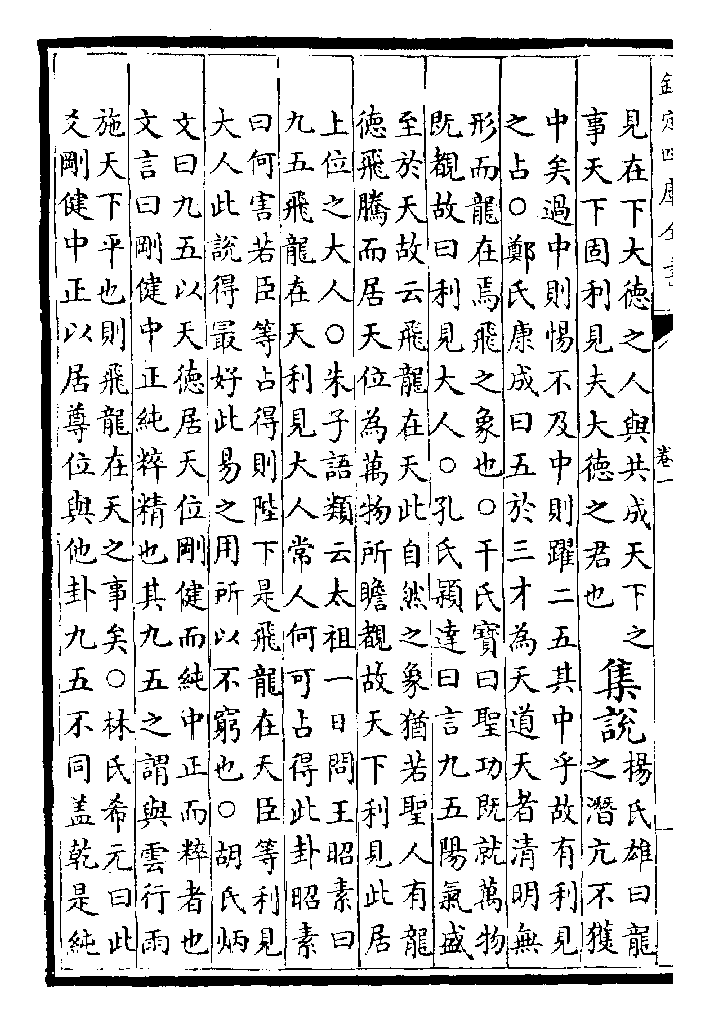 欽定四庫全書
卷一
見在下大德之人與共成天下之
事天下固利見夫大德之君也
集說
楊氏雄曰龍
之潛亢不獲
中矣過中則惕不及中則躍二五其中乎故有利見
之占○鄭氏康成曰五於三才為天道天者清明無
形而龍在焉飛之象也○干氏寶曰聖功既就萬物
既覩故曰利見大人○孔氏穎達曰言九五陽氣盛
至於天故云飛龍在天此自然之象猶若聖人有龍
德飛騰而居天位為萬物所瞻覩故天下利見此居
上位之大人○朱子語類云太祖一日問王昭素曰
九五飛龍在天利見大人常人何可占得此卦昭素
曰何害若臣等占得則陛下是飛龍在天臣等利見
大人此說得最好此易之用所以不窮也○胡氏炳
文曰九五以天德居天位剛健而純中正而粹者也
文言曰剛健中正純粹精也其九五之謂與雲行雨
施天下平也則飛龍在天之事矣○林氏希元曰此
爻剛健中正以居尊位與他卦九五不同盖乾是純